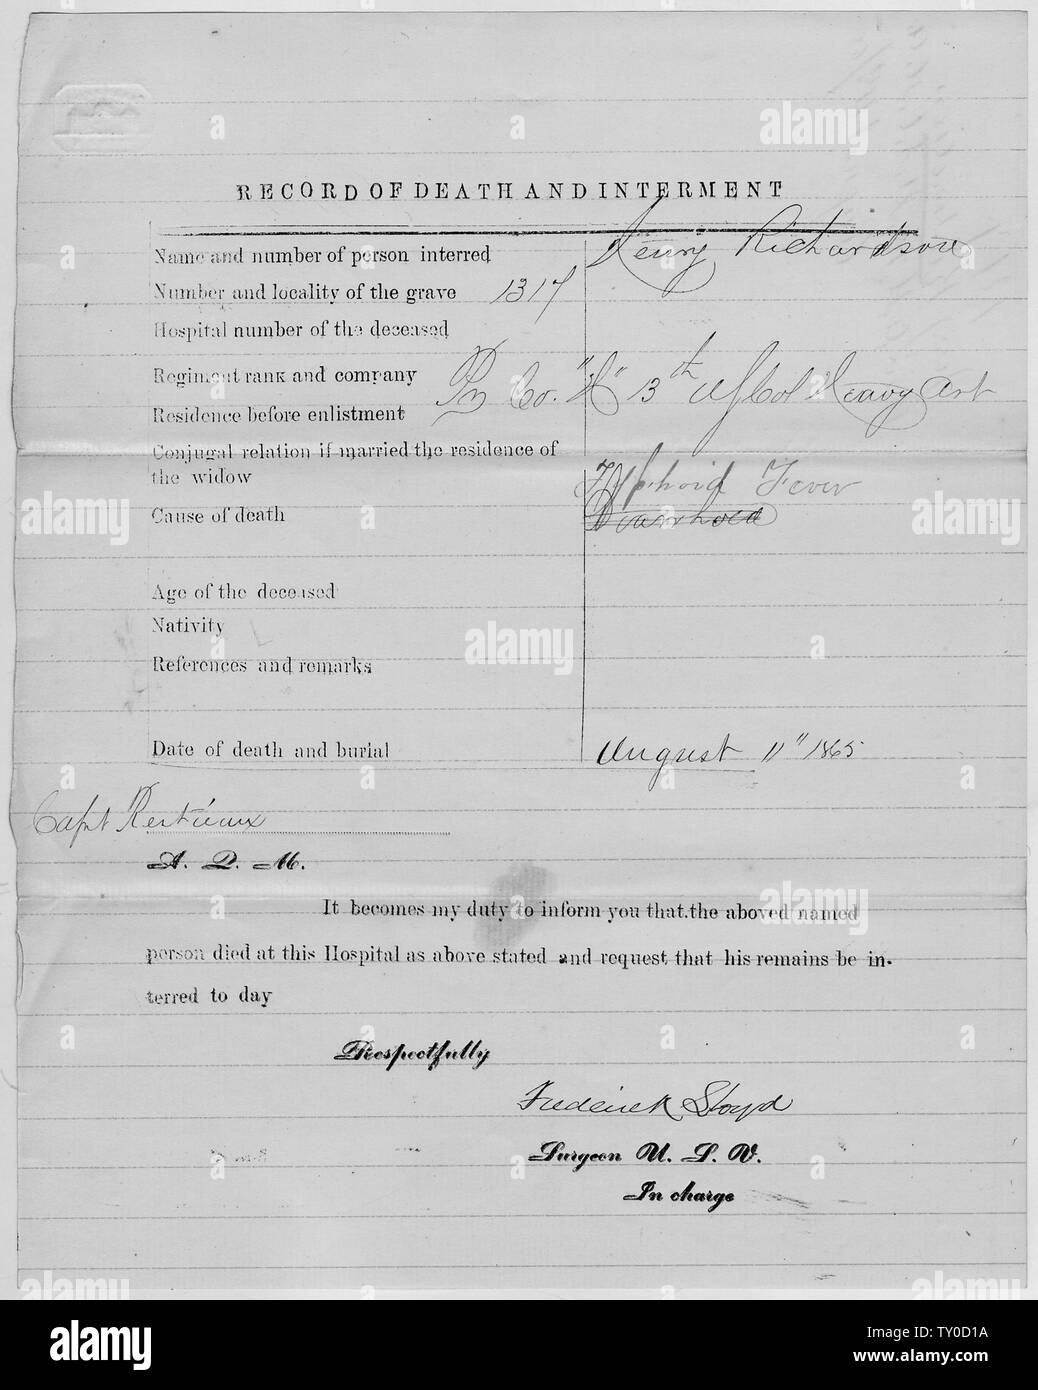 RECORD OF DEATH AND INTERMENT
Name and number of person interred Henry Richardson
Number and locality of the grave 1317
Hospital number of the deceased
Regiment rank and company Co. "H" 13th US Col Heavy Art
Residence before enlistment
Conjugal relation if married the residence of
the widow
Typhoid Fever
Cause of death Diarrhoea
Age of the deceased
Nativity
References and remarks
Date of death and burial August 11" 1865
Capt
A. Q. M.
It becomes my duty to inform you that.the aboved named
person died at this Hospital as above stated and request that his remains be in-
terred to day
Respectfully
Frederick Lloyd
Surgeon U. S. V.
In charge
alamy
Image ID: TY0D1A
www.alamy.com